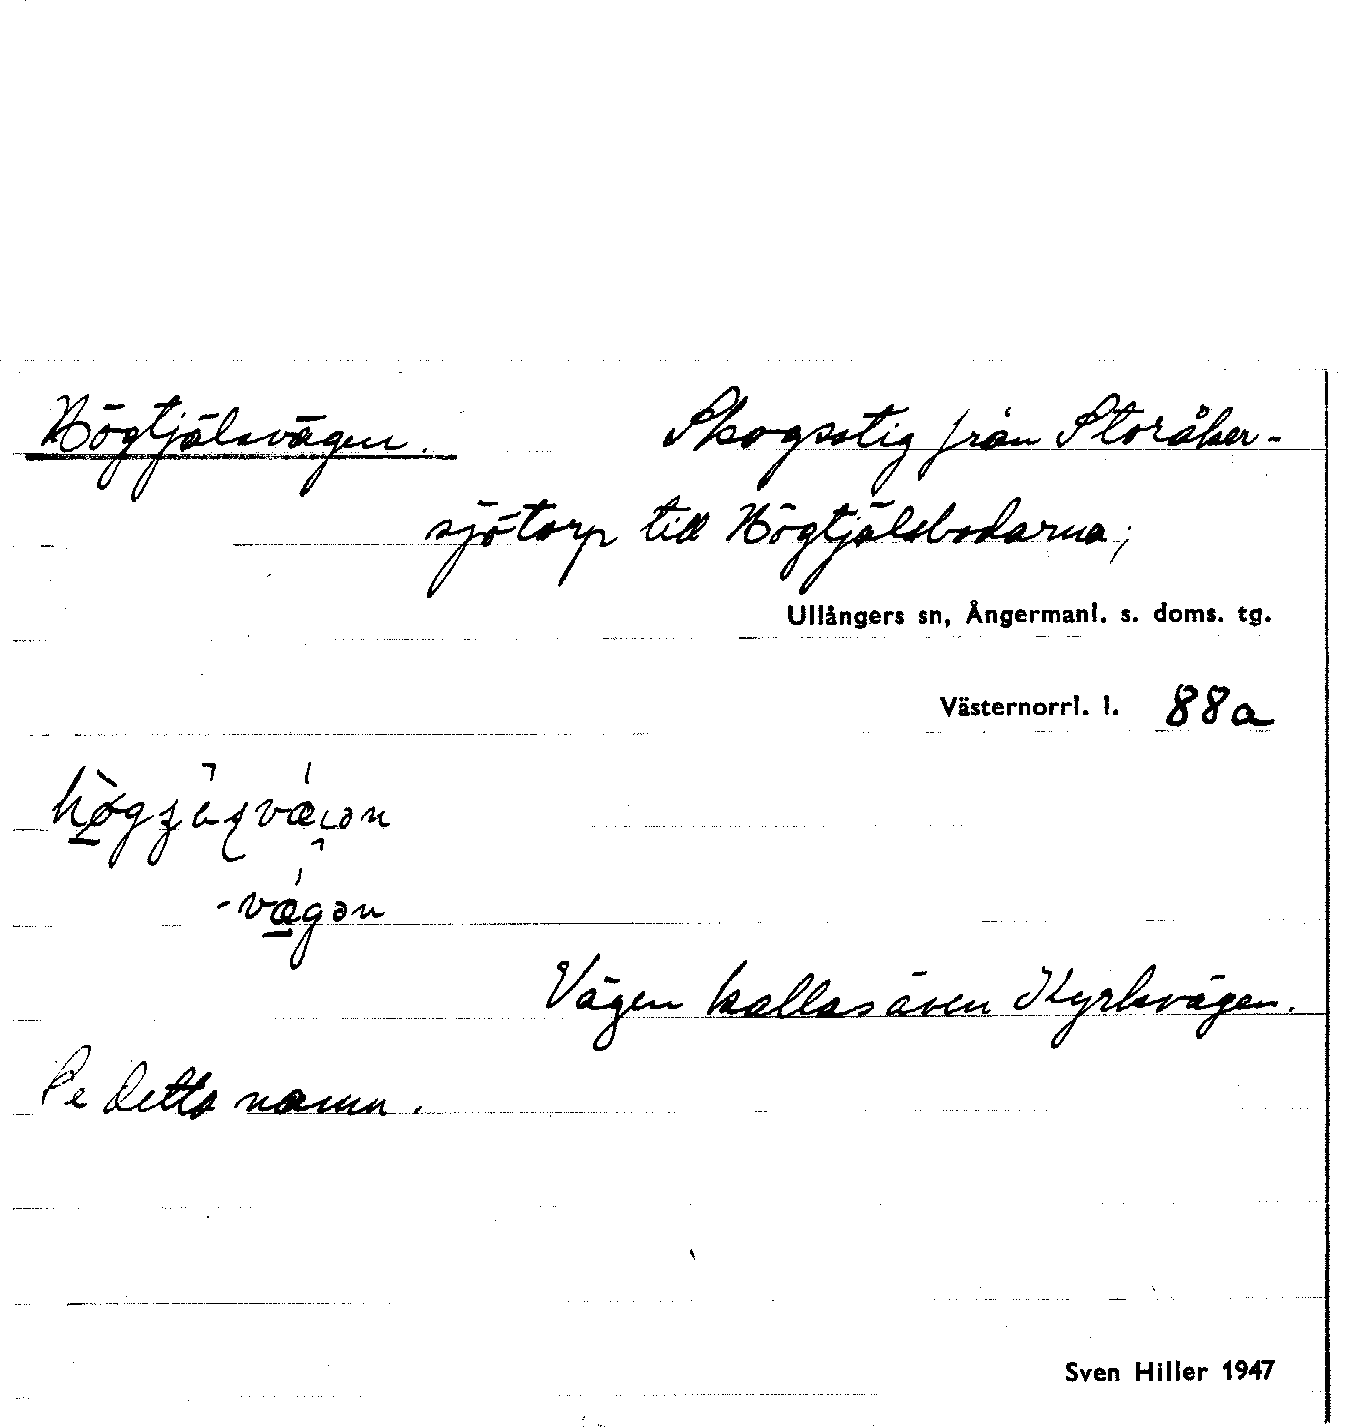 Högtjälsvägen. Skogsstig från Storåker-
sjötorp till Högtjälsbodarna;
Ullångers sn, Ångermanl. s. doms. tg.
Västernorrl. l. 88a
-vægən
Vägen kallas även Kyrkvägen.
Se detta namn.
Sven Hiller 1947